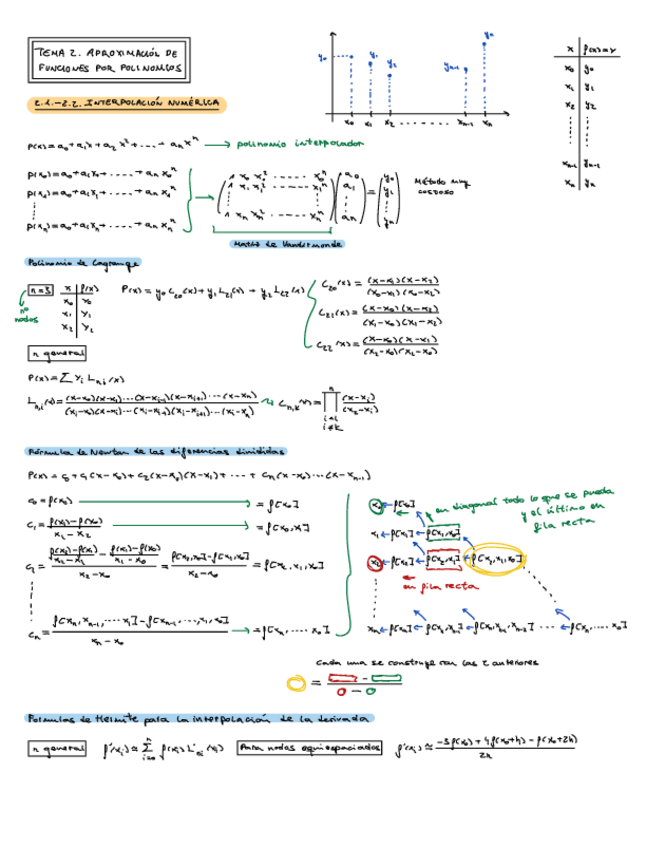 TEMA 2. APROXIMACIÓN DE
FUNCIONES POR POLINOMIOS
2.1.-2.2. INTERPOLACIÓN NUMÉRICA
y₀ y₁ y₂ yₙ₋₁ yₙ
x₀ x₁ x₂ ........ xₙ₋₁ xₙ
x f(x)=y
x₀ y₀
x₁ y₁
x₂ y₂
xₙ₋₁ yₙ₋₁
xₙ yₙ
p(x)=a₀+a₁x+a₂x²+....+aₙxⁿ → polinomio interpolador
p(x₀)=a₀+a₁x₀+.....+aₙx₀ⁿ
p(x₁)=a₀+a₁x₁+.....+aₙx₁ⁿ
p(xₙ)=a₀+a₁xₙ+.....+aₙxₙⁿ
(1 x₀ x₀² ...... x₀ⁿ) (a₀) = (y₀)
(1 x₁ x₁² ...... x₁ⁿ) (a₁) (y₁)
(1 xₙ xₙ² ...... xₙⁿ) (aₙ) (yₙ)
Método muy
costoso
Matriz de Vandermonde
Polinomio de Lagrange
n=3
nº
nodos
x f(x)
x₀ y₀
x₁ y₁
x₂ y₂
P(x)=y₀L₂₀(x)+y₁L₂₁(x)+y₂L₂₂(x)
L₂₀(x)=(x-x₁)(x-x₂)/(x₀-x₁)(x₀-x₂)
L₂₁(x)=(x-x₀)(x-x₂)/(x₁-x₀)(x₁-x₂)
L₂₂(x)=(x-x₀)(x-x₁)/(x₂-x₀)(x₂-x₁)
n general
P(x)=∑yᵢLₙ,ᵢ(x)
Fórmula de Newton de las diferencias divididas
P(x)=c₀+c₁(x-x₀)+c₂(x-x₀)(x-x₁)+....+cₙ(x-x₀)...(x-xₙ₋₁)
c₀=f(x₀) → =f[x₀]
=f[x₀,x₁]
=f[x₂,x₁,x₀]
cₙ=f[xₙ,xₙ₋₁,....x₁]-f[xₙ₋₁,...,x₁,x₀]/xₙ-x₀ → =f[xₙ,....x₀]
en diagonal todo lo que se pueda
y el último en
fila recta
x₀ ← f[x₀]
x₁ ← f[x₁] ← f[x₁,x₀]
x₂ ← f[x₂] ← f[x₂,x₁] ← f[x₂,x₁,x₀]
en fila recta
xₙ ← f[xₙ] ← f[xₙ,xₙ₋₁] ← f[xₙ,xₙ₋₁,xₙ₋₂] .... ← f[xₙ,....x₀]
Cada una se construye con las 2 anteriores
Fórmulas de Hermite para la interpolación de la derivada
n general
f'(xᵢ)≃∑f(xᵢ)L'ₙᵢ(xᵢ)
Para nodos equiespaciados
f'(xᵢ)≃-3f(x₀)+4f(x₀+h)-f(x₀+2h)/2h